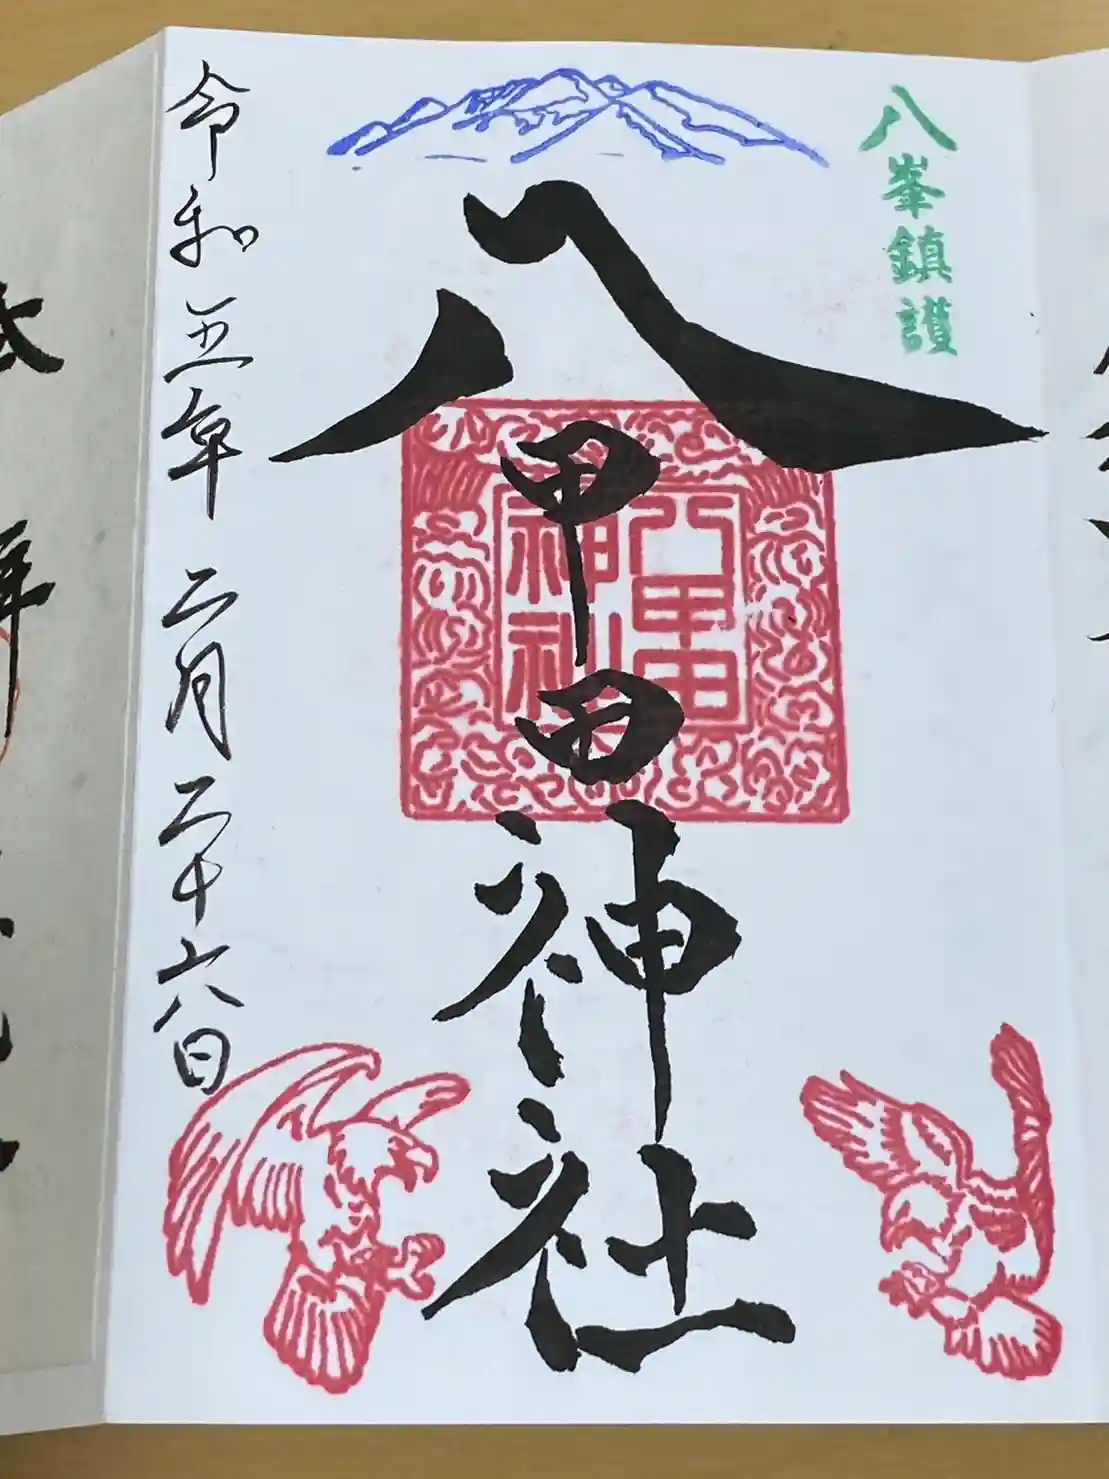 八峯鎮護
八甲田神社
八甲田
神社
令和五年二月二十六日
拝